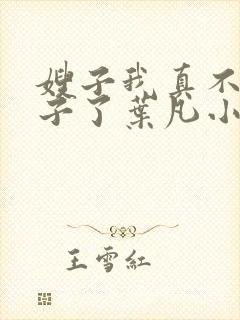 嫂子我真不
子了葉凡小
王雪紅